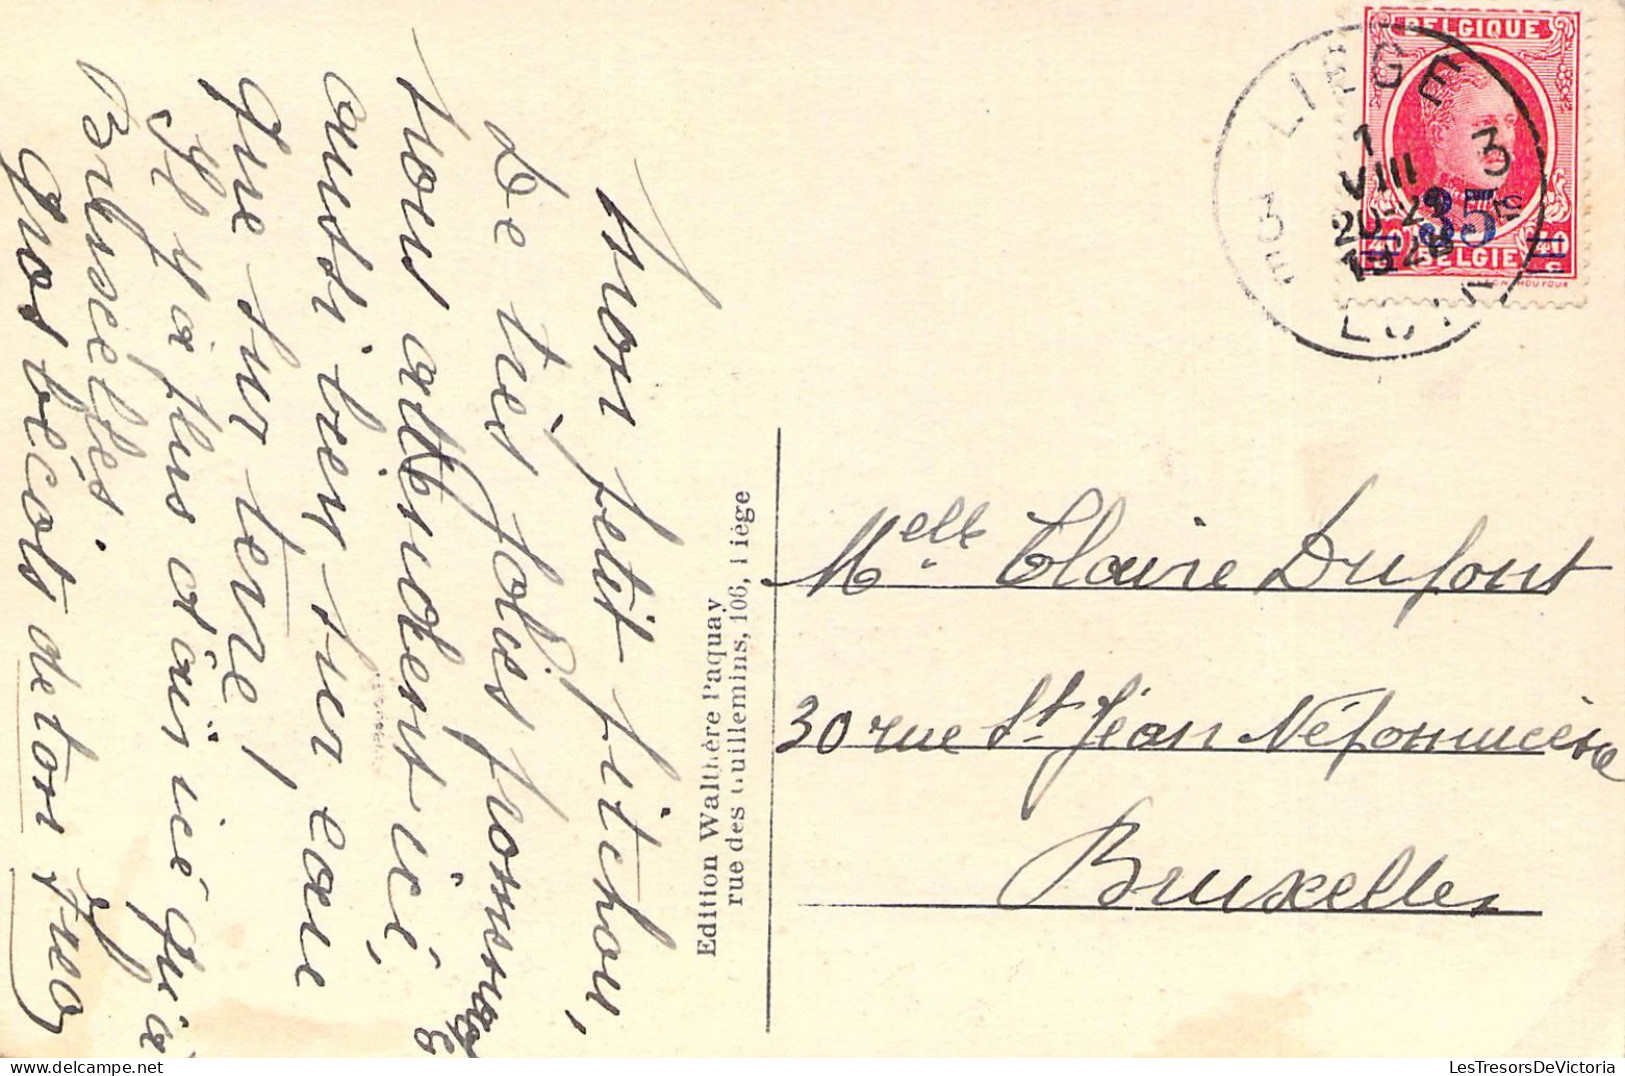 Mon petit fitchou,
De très jolis promenades
nous attendent ici,
aussi bien sur eau
que sur terre!
Il y a plus d'air ici qu'à
Bruxelles.
Gros bécots de ton
Edition Walthère Paquay
rue des Guillemins, 106, Liége
BELGIQUE
35
40 40
BELGIE
LIEGE
3 3
1
VIII
20-21
1928
LUIK
Melle Claire Dupont
30 rue St Jean Népomucène
Bruxelles
LesTresorsDeVictoria